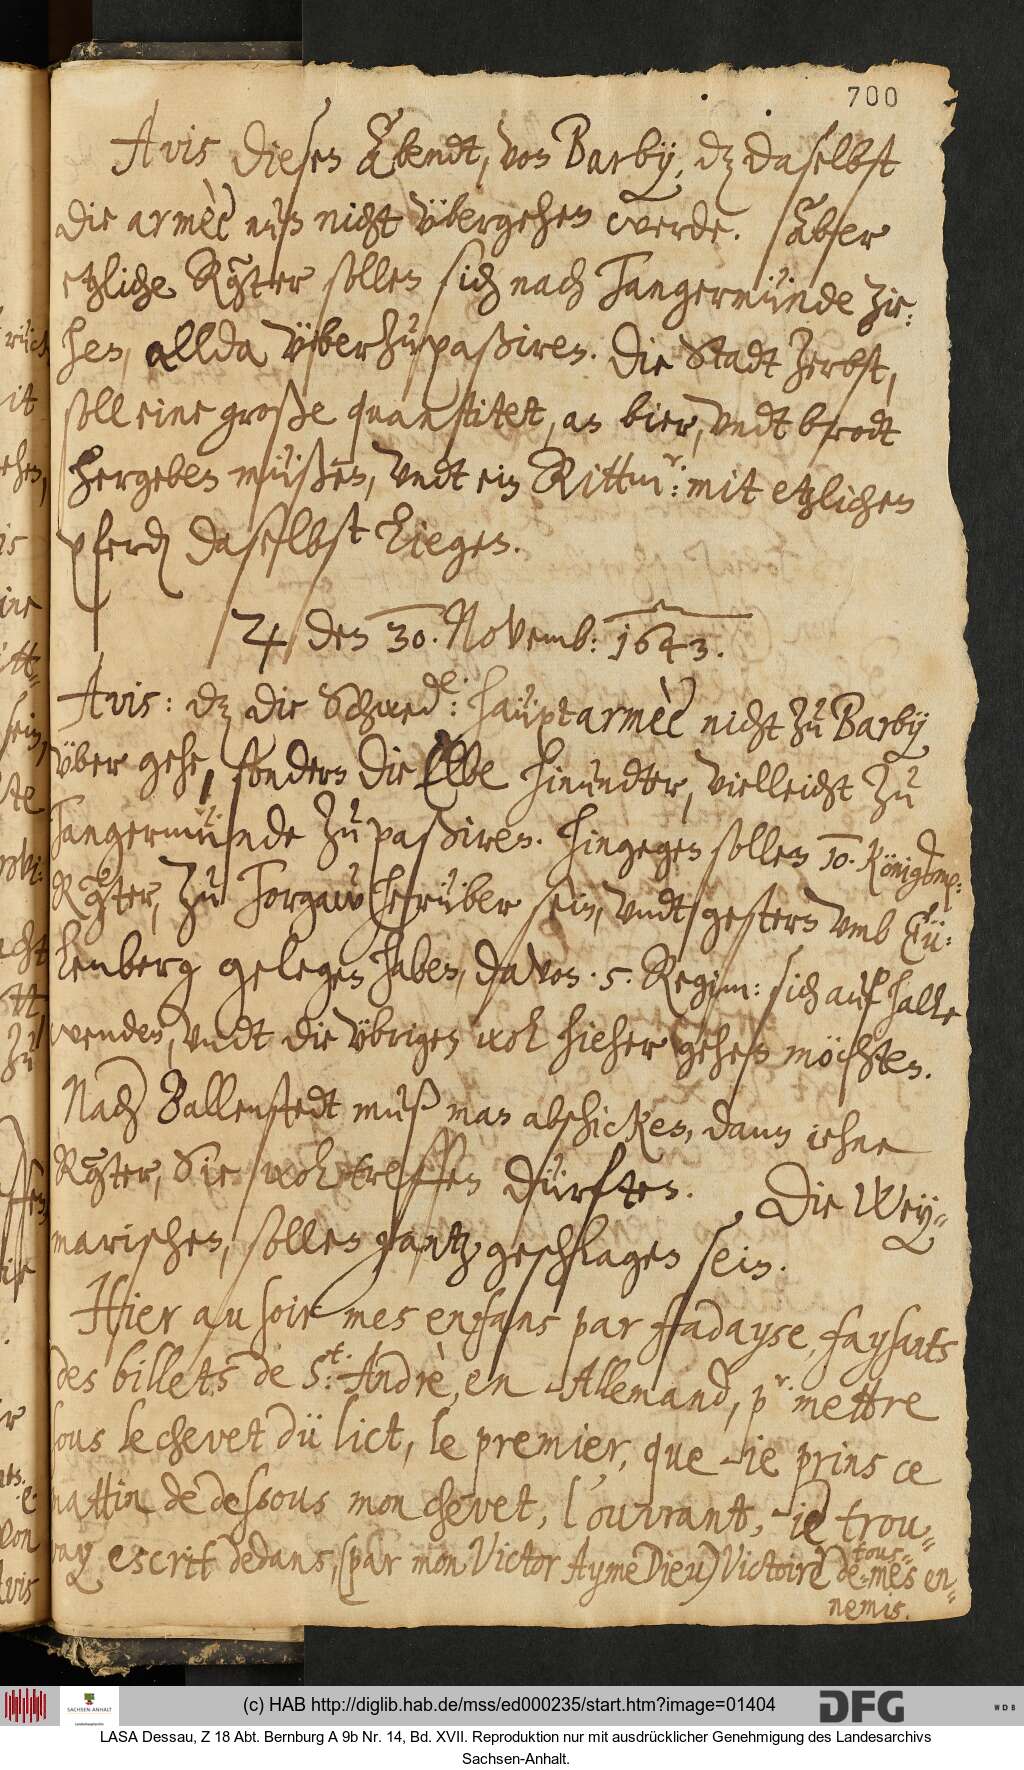 700
Avis dieses Abendt, von Barby, dz daselbst
die armèe nuhn nicht übergehen werde. Aber
etzliche Reüter sollen sich nach Tangermünde zie:
hen, allda überzupaßiren. Die Stadt Zerbst,
soll eine große quantitet, an bier, vndt brodt
hergeben müßen, vndt ein Rittmr: mit etzlichen
pferd daselbst liegen.
♃ den 30. Novemb: 1643.
Avis: dz die Schwede: hauptarmèe nicht zu Barby
über gehe, sondern die Elbe hinundter, vielleicht zu
Tangermünde zu paßiren. Hingegen sollen 10. Königsmr:
Reüter, zu Torgaw herüber sein, vndt gestern vmb Eü:
lenberg gelegen haben, davon 5. Regim: sich auf halle
wenden, vndt die übrigen wol hieher gehen möchten.
Nach Ballenstedt muß man abschicken, dann iehne
Reüter, Sie wol treffen dürften. Die Wey-
marischen, sollen gantz geschlagen sein.
Hier au soir mes enfans par fadayse, faysants
des billets de St: Andrè, en Allemand, pr. mettre
sous le chevet dü lict, le premier, que ie prins ce
mattin de dessous mon chevet, l'ouvrant, ie trou-
vay escrit dedans, (par mon Victor Ayme Dieu) Victoire de tous mes en-
nemis.
(c) HAB http://diglib.hab.de/mss/ed000235/start.htm?image=01404
SACHSEN-ANHALT
DFG
WDB
LASA Dessau, Z 18 Abt. Bernburg A 9b Nr. 14, Bd. XVII. Reproduktion nur mit ausdrücklicher Genehmigung des Landesarchivs
Sachsen-Anhalt.